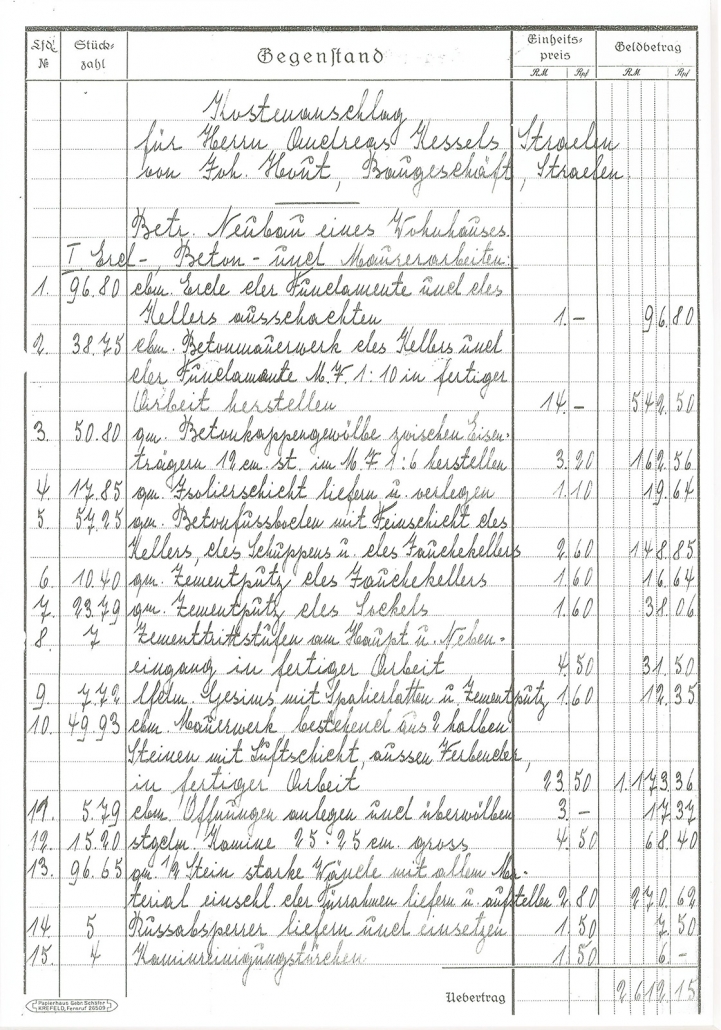 Lfd. № Stück-zahl Gegenstand Einheits-preis Geldbetrag
RM. Rpf RM. Rpf
Kostenanschlag
für Herrn Andreas Kessels Straelen
von Joh. Hout, Baugeschäft, Straelen.
Betr. Neubau eines Wohnhauses.
I. Erd-, Beton- und Maurerarbeiten:
1. 96.80 cbm. Erde der Fundamente und des
Kellers ausschachten 1.- 96.80
2. 38.75 cbm. Betonmauerwerk des Kellers und
der Fundamante M.V. 1:10 in fertiger
Arbeit herstellen 14.- 542.50
3. 50.80 qm. Betonkappengewölbe zwischen Eisen-
trägern 12 cm. st. im M.V 1:6 herstellen 3.20 162.56
4 17.85 qm. Isolierschicht liefern u. verlegen 1.10 19.64
5 57.25 qm. Betonfussboden mit Feinschicht des
Kellers, des Schuppens u. des Jauchekellers 2.60 148.85
6. 10.40 qm. Zementputz des Jauchekellers 1.60 16.64
7. 23.79 qm. Zementputz des Sockels 1.60 38.06
8. 7 Zementtrittstufen am Haupt u. Neben-
eingang in fertiger Arbeit 4.50 31.50
9. 7.72 lfdm. Gesims mit Spalierlatten u. Zementputz 1.60 12.35
10. 49.93 cbm. Mauerwerk bestehend aus 2 halben
Steinen mit Luftschicht, aussen Verblender,
in fertiger Arbeit 23.50 1.173.36
11. 5.79 cbm. Öffnungen anlegen und überwölben 3.- 17.37
12. 15.20 stgdm. Kamine 25·25 cm. gross 4.50 68.40
13. 96.65 qm. 1/2 Stein starke Wände mit allem Ma-
terial einschl. der Türrahmen liefern u. aufstellen 2.80 270.62
14 5 Russabsperrer liefern und einsetzen 1.50 7.50
15 4 Kaminreinigungstürchen 1.50 6.-
Uebertrag 2612.15
Papierhaus Gebr. Schäfer
KREFELD, Fernruf 26509